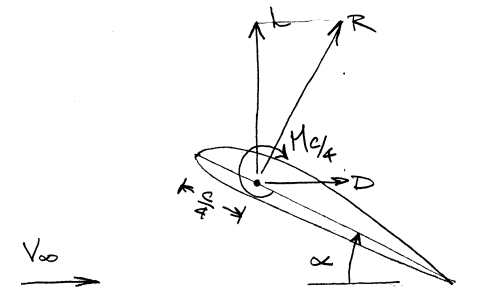 L
R
M c/4
D
c/4
V∞
α